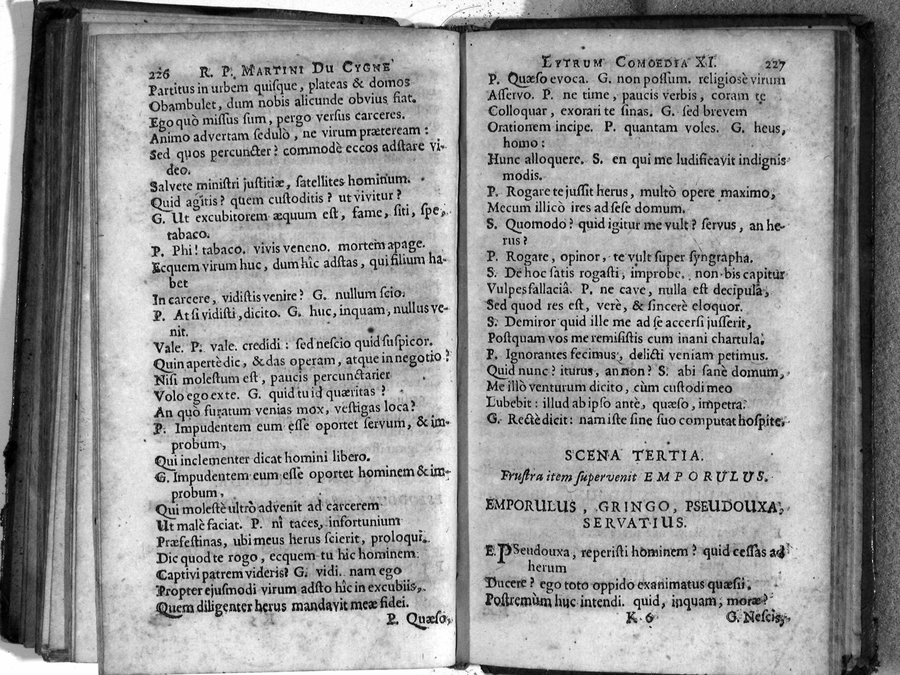 226 R. P. MARTINI DU CYGNE
Partitus in urbem quisque, plateas & domos
Obambulet, dum nobis alicunde obvius fiat.
Ego quò missus sum, pergo versus carceres.
Animo advertam sedulò, ne virum præteream :
Sed quos percuncter? commodè eccos adstare vi-
deo.
Salvete ministri justitiæ, satellites hominum.
Quid agitis? quem custoditis? ut vivitur?
G. Ut excubitorem æquum est, fame, siti, spe,
tabaco.
P. Phi! tabaco. vivis veneno. mortem apage.
Ecquem virum huc, dum hîc adstas, qui filium ha-
bet
In carcere, vidistis venire? G. nullum scio.
P. At si vidisti, dicito. G. huc, inquam, nullus ve-
nit.
Vale. P. vale. credidi : sed nescio quid suspicor.
Quin apertè dic, & das operam, atque in negotio?
Nisi molestum est, paucis percunctarier
Volo ego ex te. G. quid tu id quæritas?
An quò furatum venias mox, vestigas loca?
P. Impudentem eum esse oportet servum, & im-
probum,
Qui inclementer dicat homini libero.
G. Impudentem eum esse oportet hominem & im-
probum,
Qui molestè ultrò advenit ad carcerem
Ut malè faciat. P. nî taces, infortunium
Præfestinas, ubi meus herus scierit, proloqui.
Dic quod te rogo, ecquem tu hîc hominem
Captivi patrem videris? G. vidi. nam ego
Propter ejusmodi virum adsto hîc in excubiis,
Quem diligenter herus mandavit meæ fidei.
P. Quæso,
LYTRUM COMOEDIA XI. 227
P. Quæso evoca. G. non possum. religiosè virum
Asservo. P. ne time, paucis verbis, coram te
Colloquar, exorari te sinas. G. sed brevem
Orationem incipe. P. quantam voles. G. heus,
homo :
Hunc alloquere. S. en qui me ludificavit indignis
modis.
P. Rogare te jussit herus, multò opere maximo,
Mecum illicò ires ad sese domum.
S. Quomodo? quid igitur me vult? servus, an he-
rus?
P. Rogare, opinor, te vult super syngrapha.
S. De hoc satis rogasti, improbe. non bis capitur
Vulpes fallaciâ. P. ne cave, nulla est decipula,
Sed quod res est, verè, & sincerè eloquor.
S. Demiror quid ille me ad se accersi jusserit,
Postquam vos me remisistis cum inani chartula.
P. Ignorantes fecimus, delicti veniam petimus.
Quid nunc? iturus, an non? S. abi sanè domum,
Me illò venturum dicito, cùm custodi meo
Lubebit : illud ab ipso antè, quæso, impetra.
G. Rectè dicit : nam iste sine suo computat hospite.
SCENA TERTIA.
Frustra item supervenit EMPORULUS.
EMPORULUS, GRINGO, PSEUDOUXA,
SERVATIUS.
E. PSeudouxa, reperisti hominem? quid cessas ad
herum
Ducere? ego toto oppido exanimatus quæsii.
Postremùm huc intendi. quid, inquam, moræ?
K 6 G. Nescis,